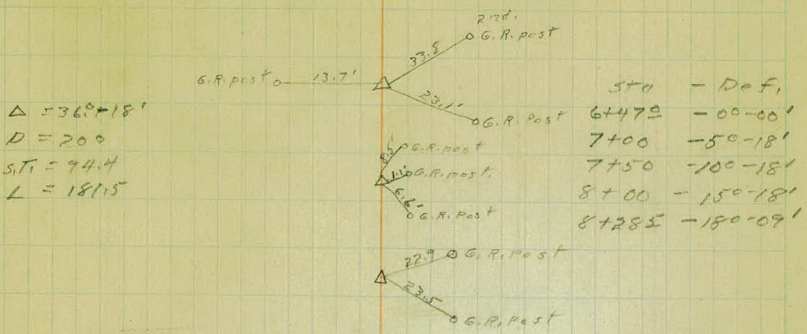 2nd.
G.R. post
33.8
G.R. post 13.7'
23.1'
G.R. post
Δ = 36°-18'
D = 20°
S.T. = 94.4
L = 181.5
8.5' G.R. post
G.R. post.
6.6'
G.R. post
22.9 G.R. post
23.5
G.R. post
Sta - Def.
6+47⁰ - 0°-00'
7+00 - 5°-18'
7+50 - 10°-18'
8+00 - 15°-18'
8+28⁵ - 18°-09'